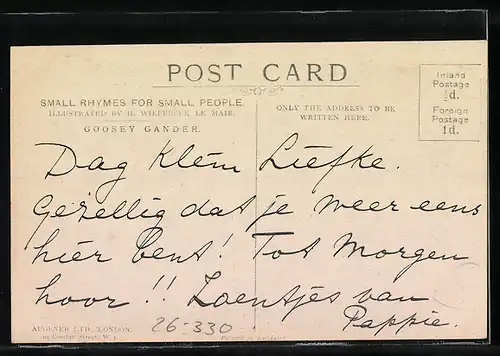 POST CARD
SMALL RHYMES FOR SMALL PEOPLE.
ILLUSTRATED BY H. WILLEBEEK LE MAIR.
GOOSEY GANDER.
ONLY THE ADDRESS TO BE
WRITTEN HERE.
Inland
Postage
½d.
Foreign
Postage
1d.
Dag klein Liefke.
Gezellig dat je weer eens
hier bent! Tot Morgen
hoor!! Zoentjes van
Pappie.
AUGENER LTD. LONDON.
Street, W. 1
26-330